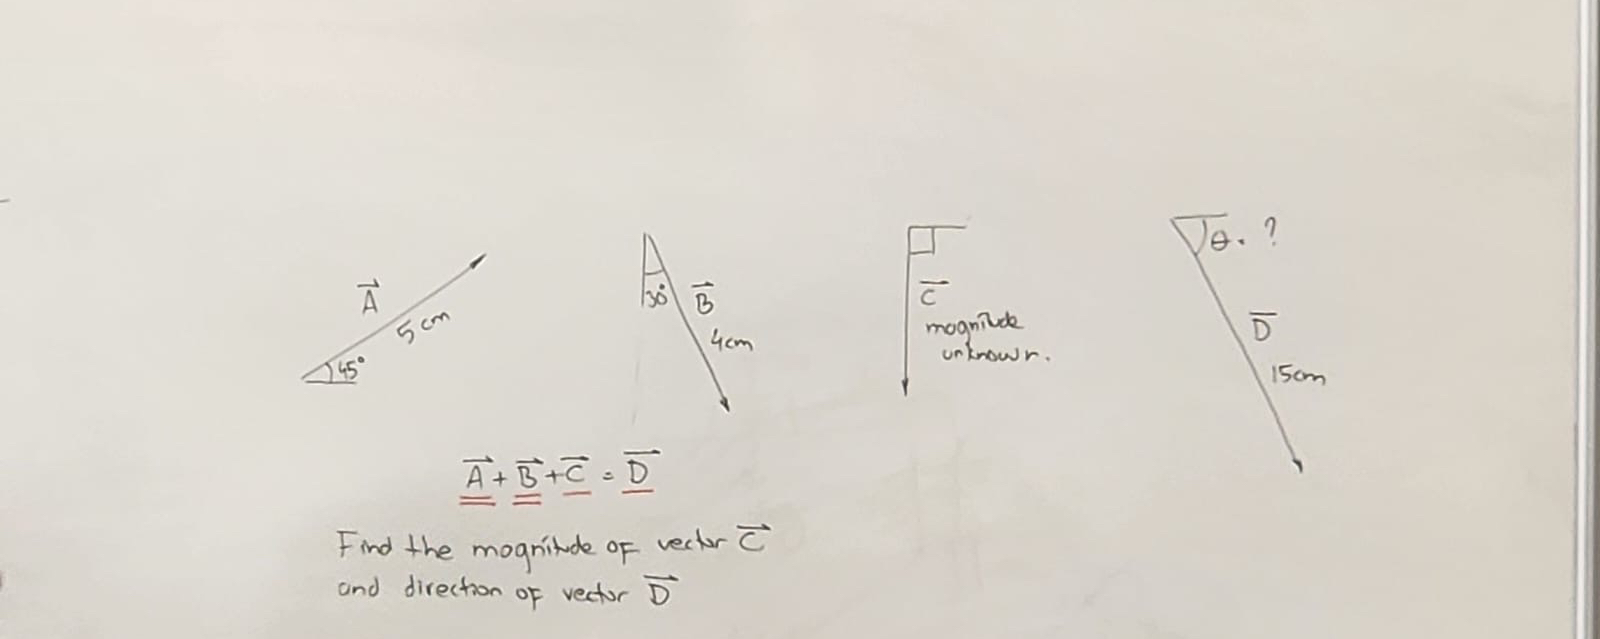 A
5 cm
45°
30°
B
4cm
C
magnitude
unknown.
θ. ?
D
15cm
A + B + C = D
Find the magnitude of vector C
and direction of vector D